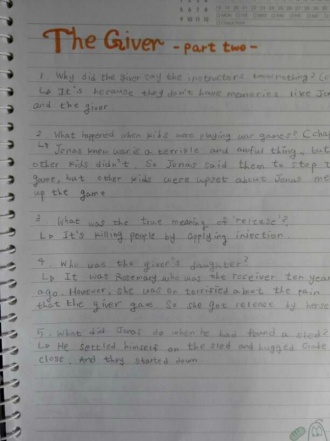 The Giver - part two -
1. Why did the giver say the instructors know nothing?
↳ It's because they don't have memories like Jonas
and the giver.
2. What happened when kids was playing war games? (chap
↳ Jonas knew war is a terrible and awful thing, but
other kids didn't. So Jonas said them to stop t
game, but other kids were upset about Jonas me
up the game.
3. What was the true meaning of 'release'?
↳ It's killing people by applying injection.
4. Who was the giver's daughter?
↳ It was Rosemary who was the receiver ten year
ago. However, she was so terrified about the pain
that the giver gave. So she got release by herse
5. What did Jonas do when he had found a sled?
↳ He settled himself on the sled and hugged Gabe
close. And they started down.